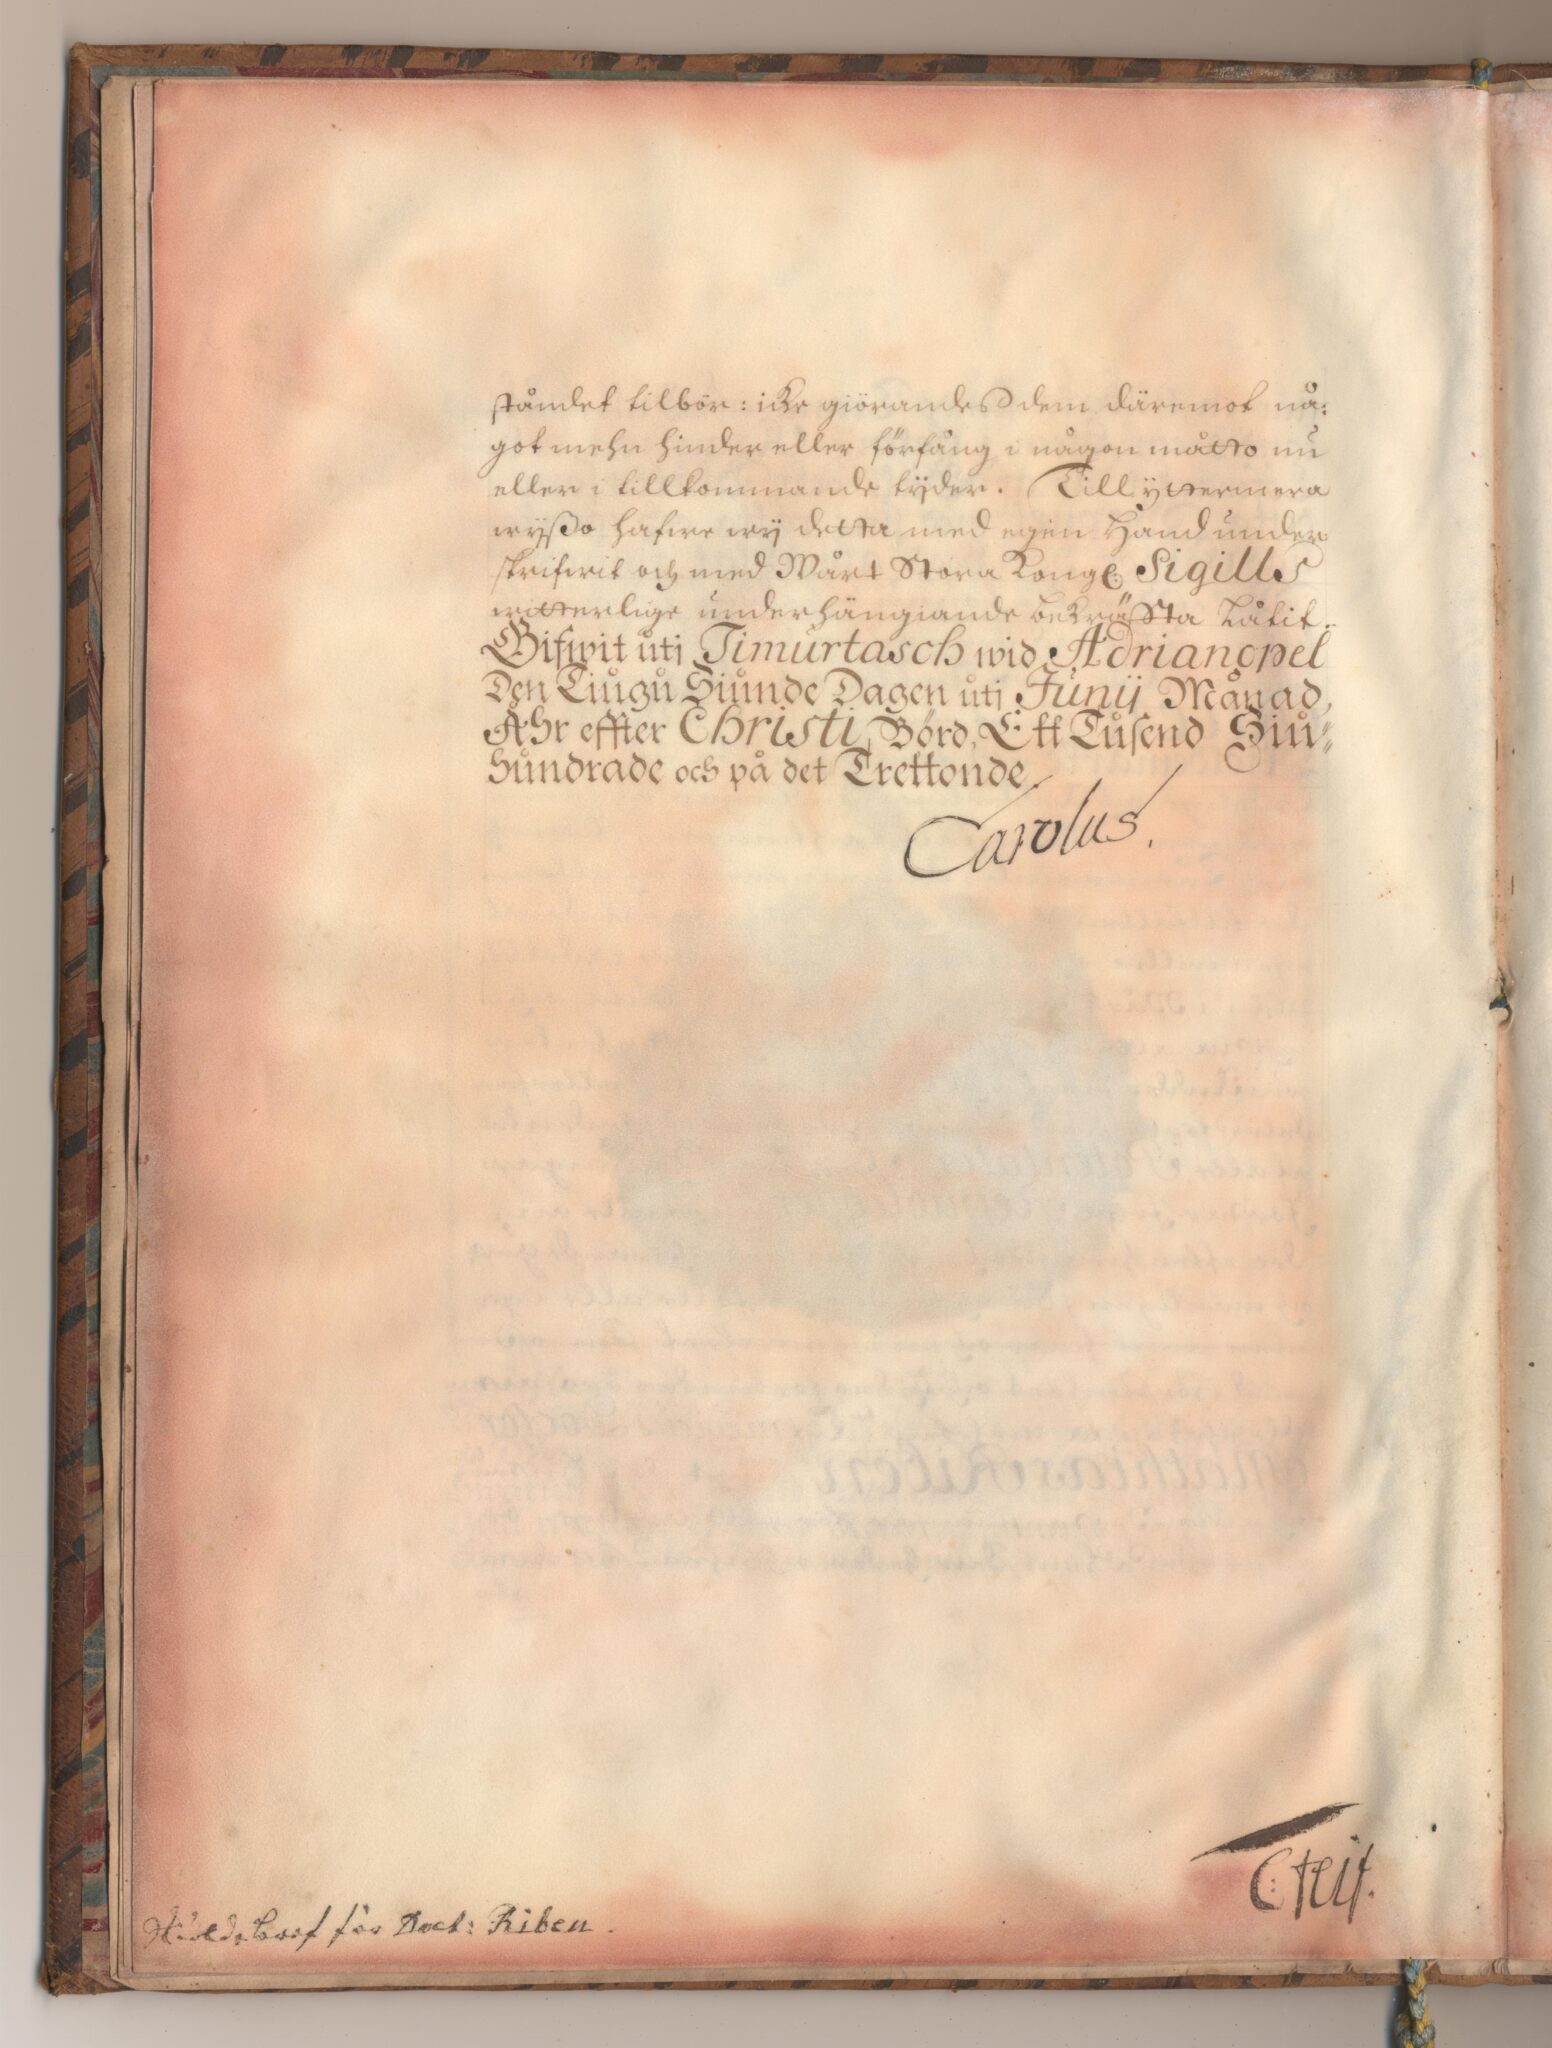 ståndet tilbör: icke giörandes dem däremot nå:
got mehn hinder eller förfång i någon måtto nu
eller i tillkommande tÿder. Till ÿttermera
wÿßo hafwe wÿ detta med egen Hand under
skrifwit och med Wårt Stora Kongl: Sigills
witterlige underhängiande bekräffta låtit.
Gifwit uti Timurtasch wid Adrianopel
Den Tiugu Siunde Dagen uti Junij Månad,
Åhr effter Christi Börd, Ett Tusend Siu-
hundrade och på det Trettonde.
Carolus.
Sköldebref för Doct: Riben.